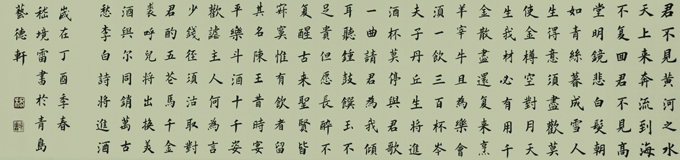 君不見黃河之水
天上來奔流到海
不复回君不見高
堂明鏡悲白髮朝
如青絲暮成雪人
生得意須盡歡莫
使金樽空對月天
生我材必有用千
金散盡還复來烹
羊宰牛且為樂會
須一飲三百杯岑
夫子丹丘生將進
酒杯莫停與君歌
一曲請君為我傾
耳聽鍾鼓饌玉不
足貴但愿長醉不
复醒古來聖賢皆
寂寞惟有飲者留
其名陳王昔時宴
平樂斗酒十千恣
歡謔主人何為言
少錢徑須沽取對
君酌五花馬千金
裘呼兒將出換美
酒與爾同銷萬古
愁李白詩將進酒
歲在丁酉季春
嵇境雷書於青島
藝德軒